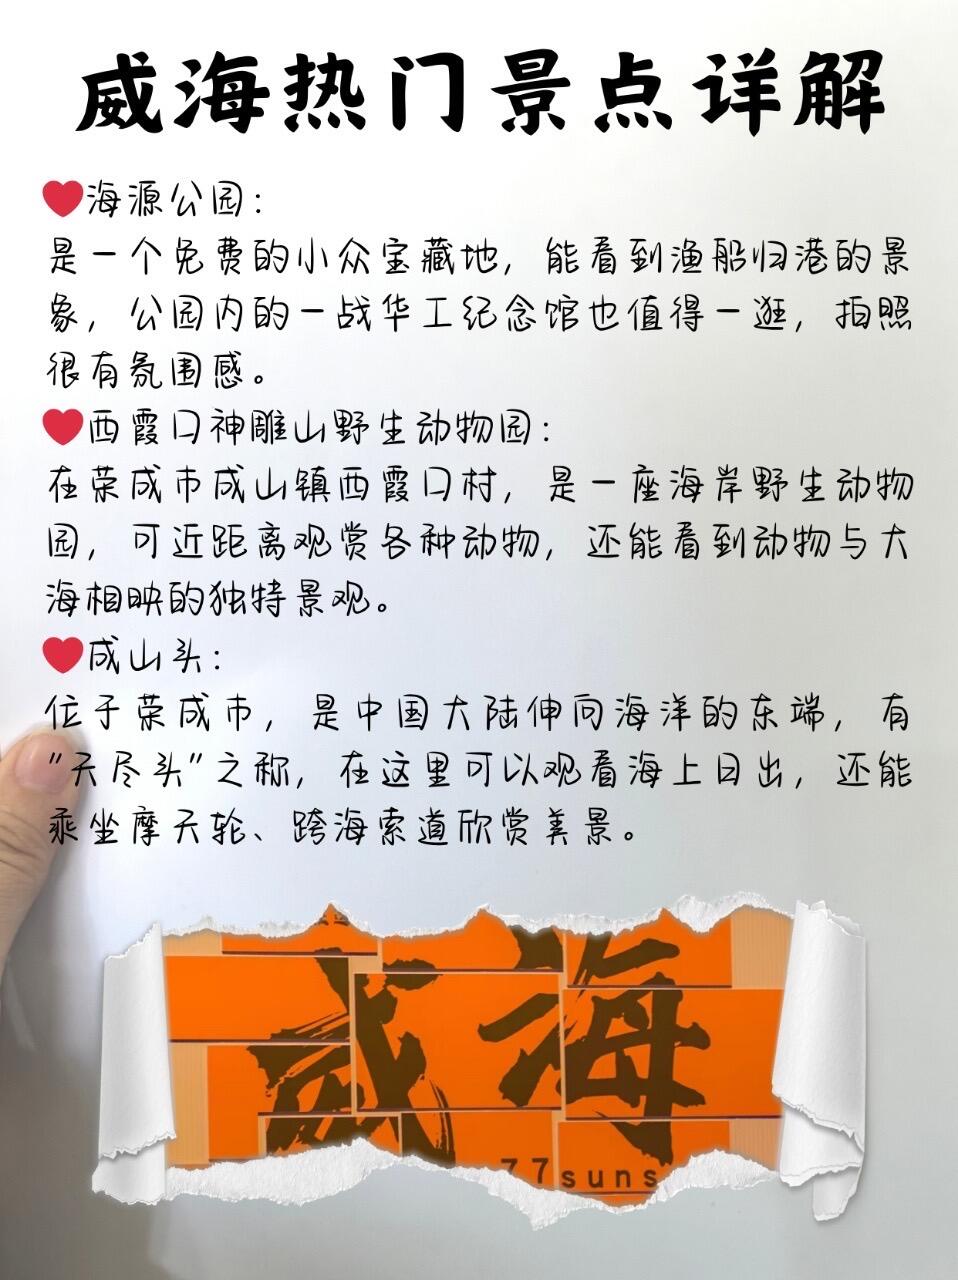 威海热门景点详解
❤海源公园：
是一个免费的小众宝藏地，能看到渔船归港的景
象，公园内的一战华工纪念馆也值得一逛，拍照
很有氛围感。
❤西霞口神雕山野生动物园：
在荣成市成山镇西霞口村，是一座海岸野生动物
园，可近距离观赏各种动物，还能看到动物与大
海相映的独特景观。
❤成山头：
位于荣成市，是中国大陆伸向海洋的东端，有
"天尽头"之称，在这里可以观看海上日出，还能
乘坐摩天轮、跨海索道欣赏美景。
威海
77suns